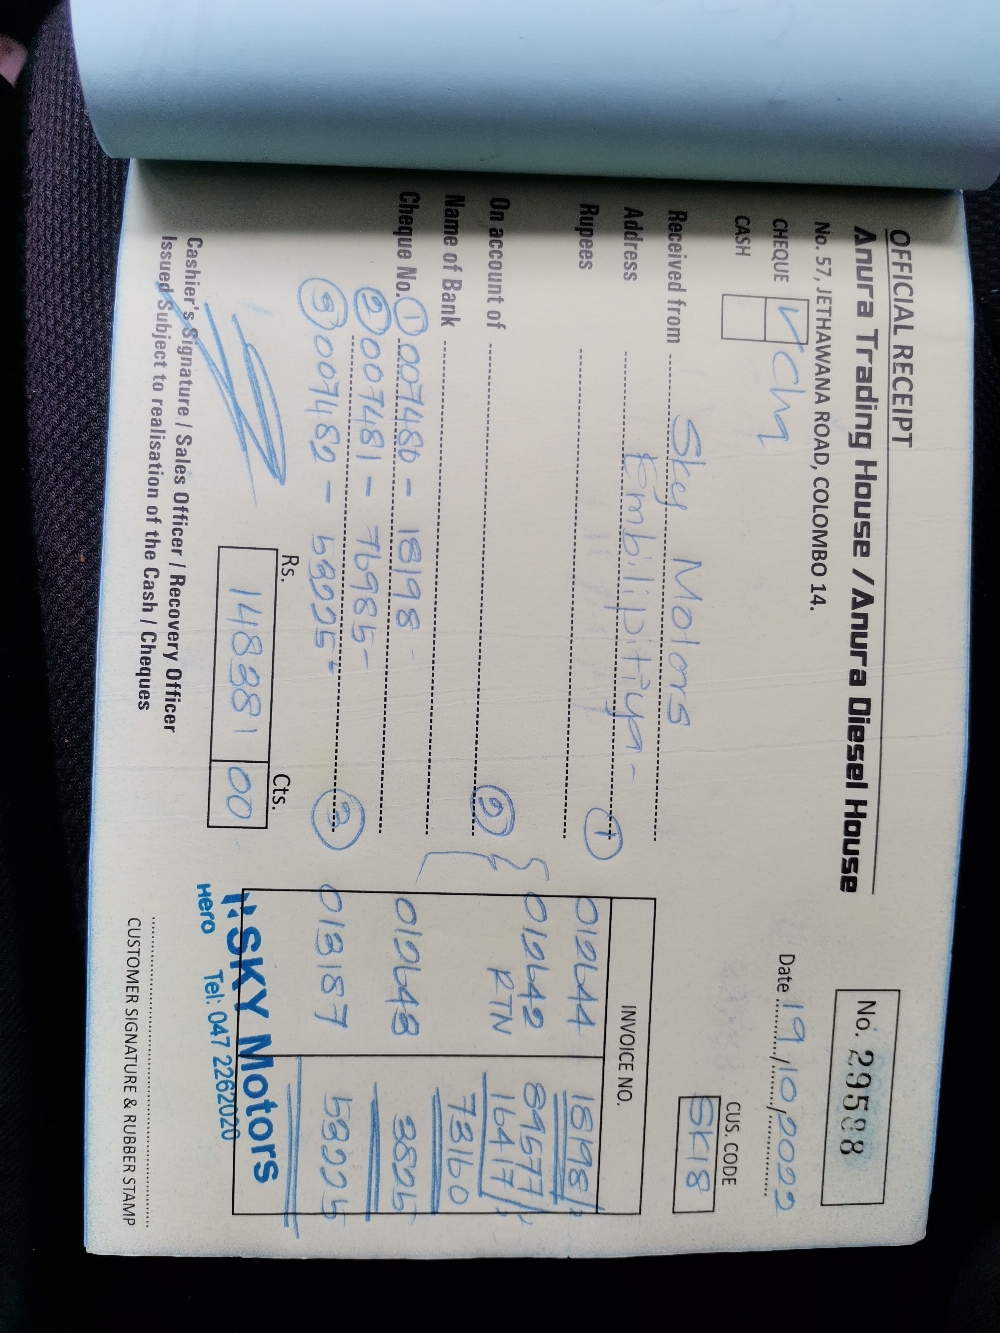 OFFICIAL RECEIPT
Anura Trading House / Anura Diesel House
No. 57, JETHAWANA ROAD, COLOMBO 14.
No. 29588
CHEQUE ✓ Chq
CASH
Date 19/10/2022
CUS. CODE
SK18
Received from Sky Motors
Address Embilipitiya -
Rupees
On account of
Name of Bank
Cheque No. ① 007480 - 18198 -
② 007481 - 76985 -
③ 007482 - 53225 -
INVOICE NO.
① 012644 18198/-
② 012642 89577/-
RTN 16417/-
73160
012648 3825
③ 013187 53225
Rs. 148381 Cts. 00
Cashier's Signature / Sales Officer / Recovery Officer
Issued Subject to realisation of the Cash / Cheques
SKY Motors
Hero Tel: 047 2262020
CUSTOMER SIGNATURE & RUBBER STAMP